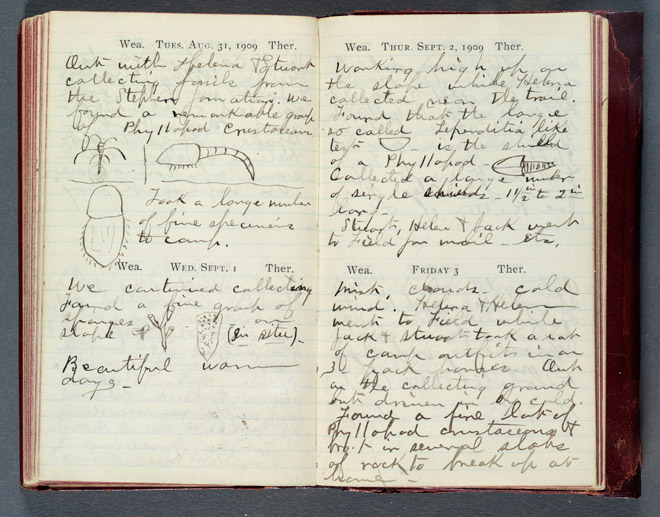 Wea. TUES. AUG. 31, 1909 Ther.
Out with Helena & Stuart
collecting fossils from
the Stephen formation. We
found a remarkable group
of Phyllopod Crustaceans
Took a large number
of fine specimens
to camp.
Wea. WED. SEPT. 1 Ther.
We continued collecting
Found a fine group of
sponges on
slope (in situ) -
Beautiful warm
days -
Wea. THUR. SEPT. 2, 1909 Ther.
Working high up on
the slope while Helena
collected near the trail.
Found that the large
so called Leperditia like
test is the shield
of a Phyllopod -
Collected a large number
of single shields - 1 1/2 in to 2 in
long -
Stuart, Helen & Jack went
to Field for mail - etc.
Wea. FRIDAY 3 Ther.
Mist, clouds - cold
wind. Helena & Helen
went to Field while
Jack & Stuart took a lot
of camp outfit in on
3 pack horses. Out
on the collecting ground
but driven in by cold.
Found a fine lot of
Phyllopod crustaceans &
brot in several slabs
of rock to break up at
home -